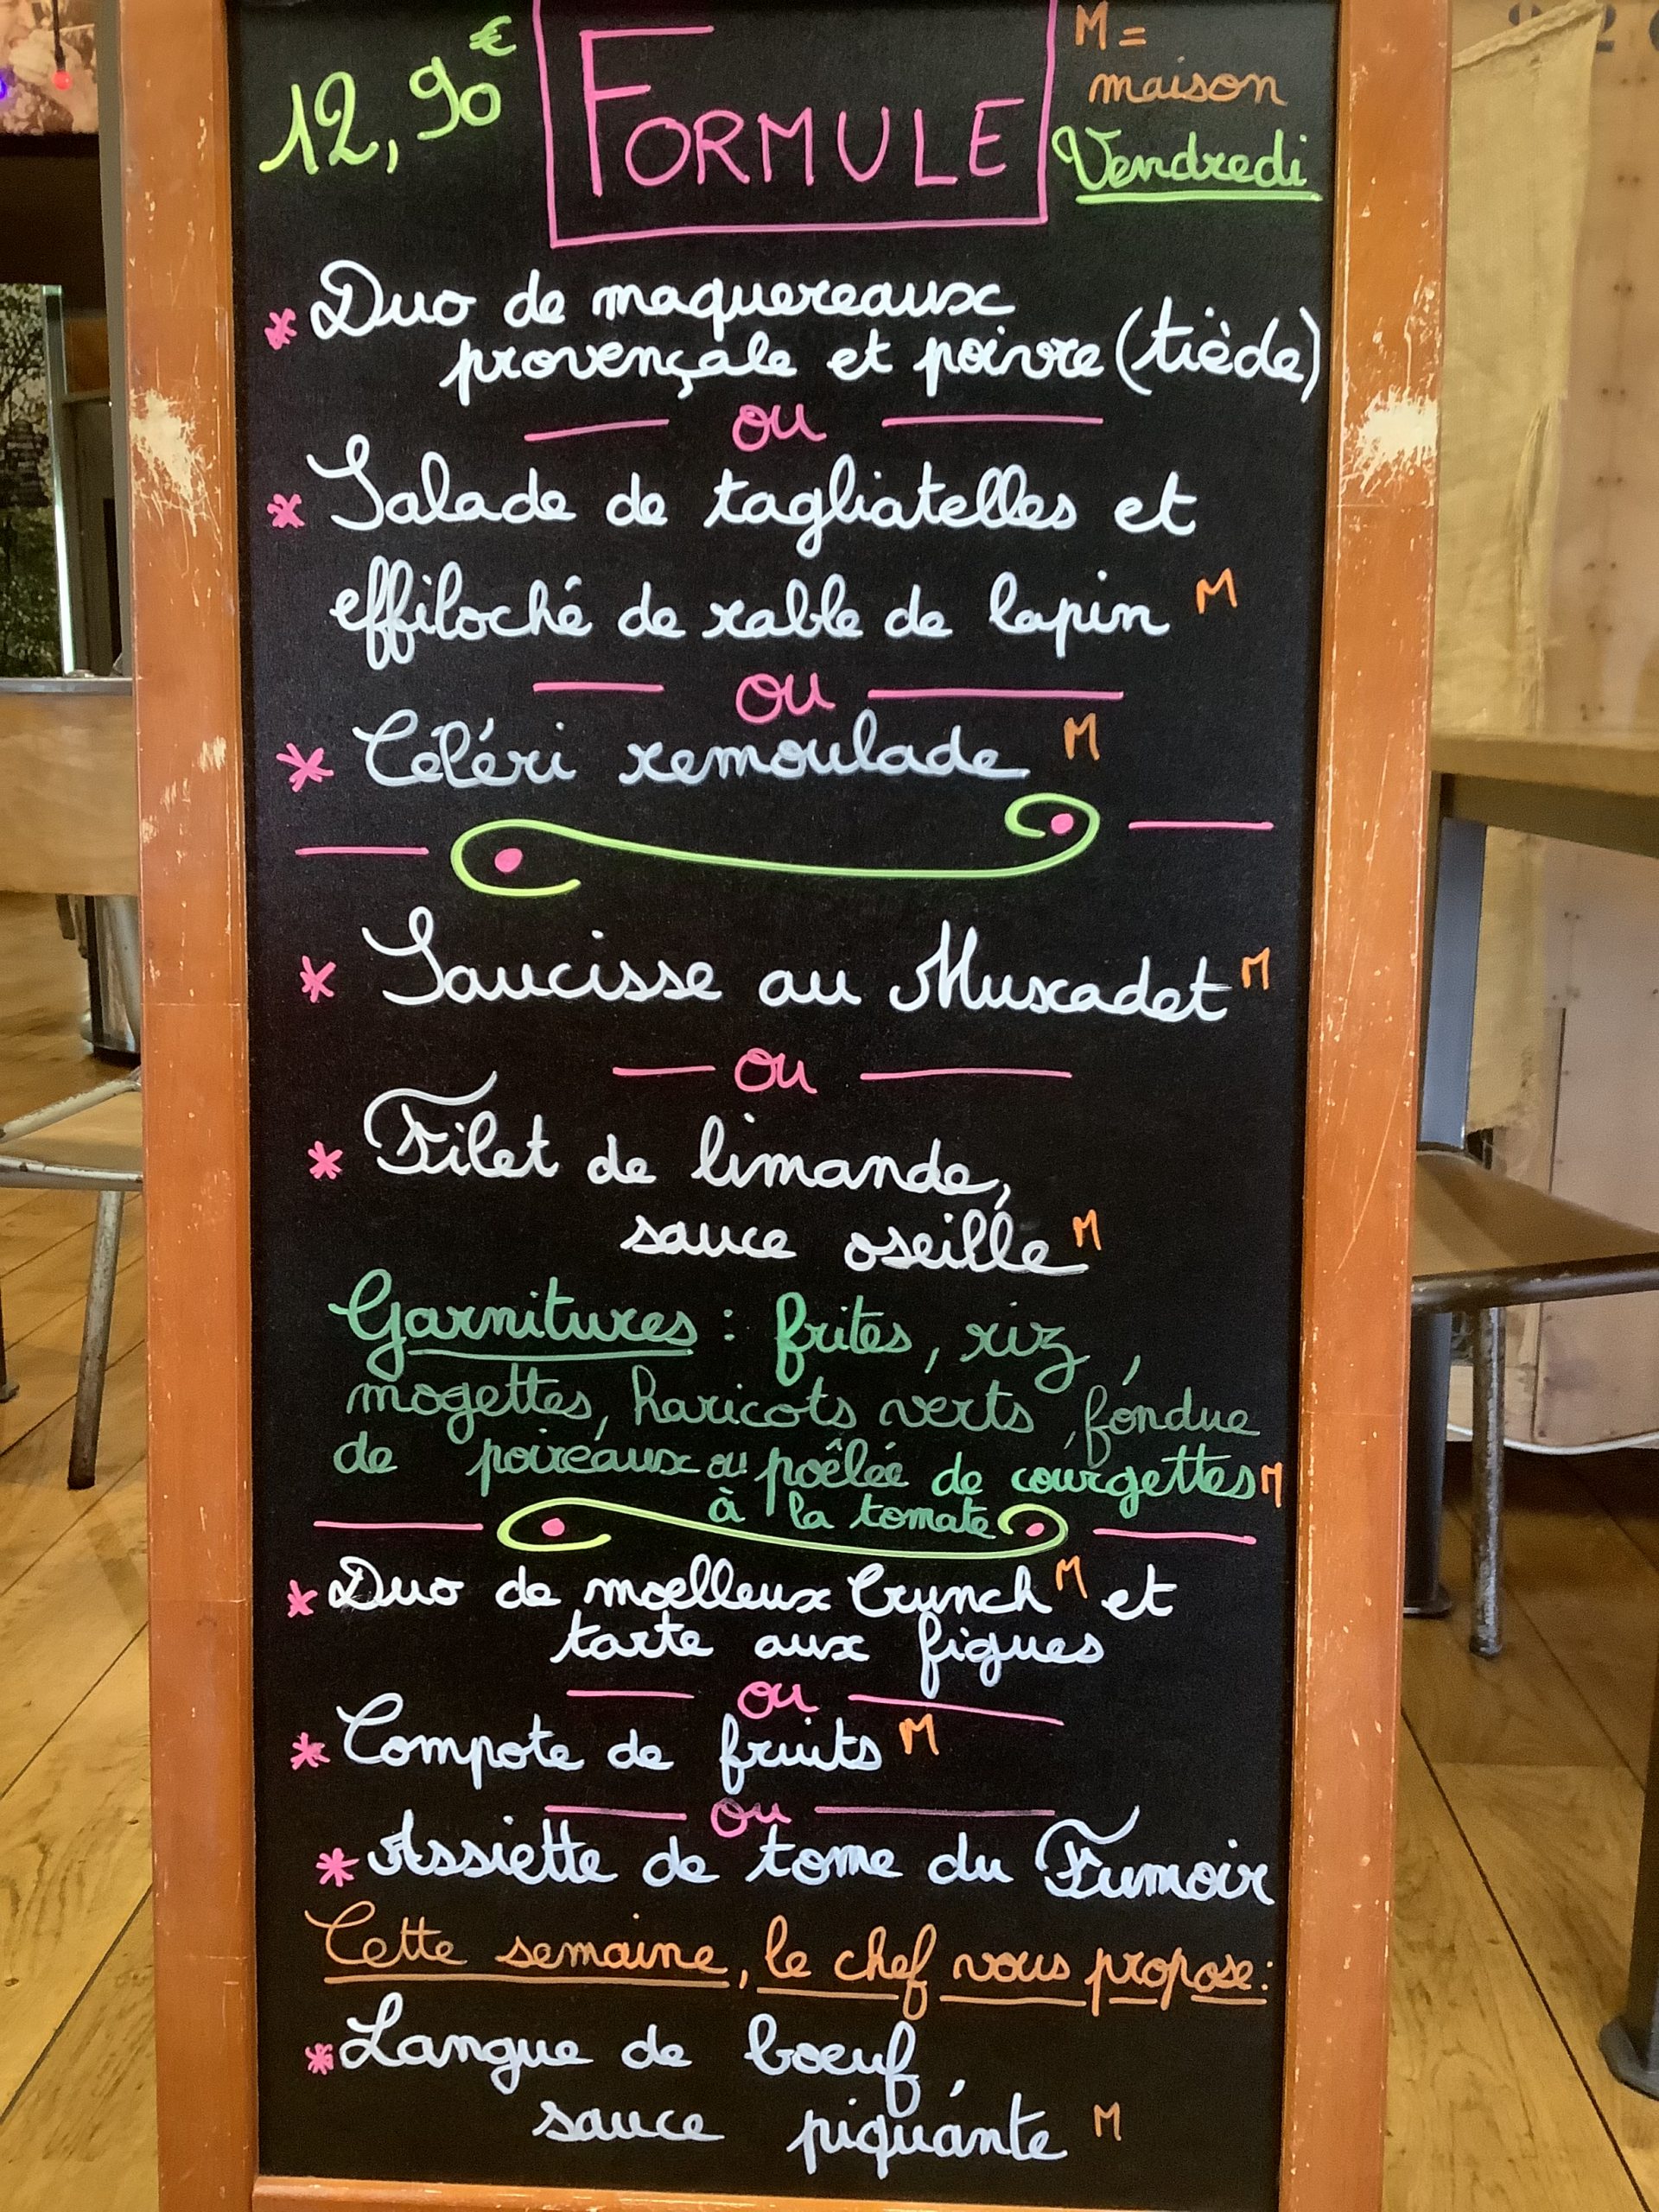 12,90€
FORMULE
M =
maison
Vendredi
* Duo de maquereaux
provençale et poivre (tiède)
ou
* Salade de tagliatelles et
effiloché de rable de lapin M
ou
* Céléri remoulade M
* Saucisse au Muscadet M
ou
* Filet de limande,
sauce oseille M
Garnitures : frites, riz,
mogettes, haricots verts, fondue
de poireaux ou poêlée de courgettes M
à la tomate
* Duo de moelleux Crunch M et
tarte aux figues
ou
* Compote de fruits M
ou
* Assiette de tome du Fumoir
Cette semaine, le chef vous propose :
* Langue de boeuf,
sauce piquante M